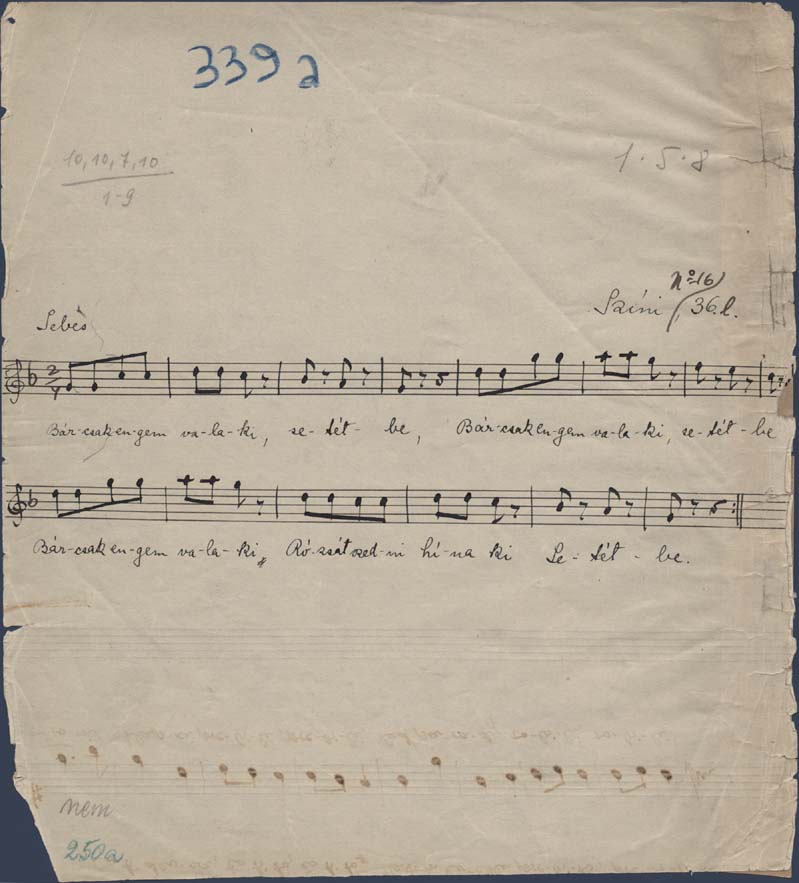 339a
10, 10, 7, 10
1-9
1·5·8
No 16)
Színi 36.l.
Sebes
2/4
Bár-csak en-gem va-la-ki, se-tét-be, Bár-csak en-gem va-la-ki, se-tét-be
Bár-csak en-gem va-la-ki, Ró-zsát szed-ni hí-na ki Se-tét-be.
nem
250a